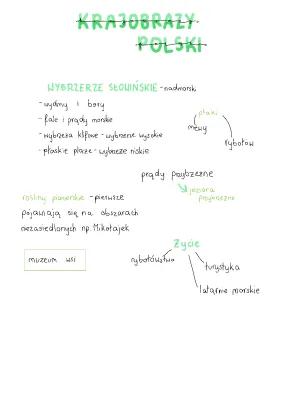 KRAJOBRAZY
POLSKI
WYBRZERZE SŁOWIŃSKIE - nadmorsk.
- wydmy i bory
- fale i prądy morskie
- wybrzeża klifowe - wybrzeże wysokie
- płaskie plaże - wybrzeże niskie
ptaki
mewy
rybołów
prądy przybrzeżne
jeziora
przybrzeżne
rośliny pionierskie - pierwsze
pojawiają się na obszarach
niezasiedlonych np. Mikołajek
muzeum wsi
Życie
rybołówstwo
turystyka
latarnie morskie